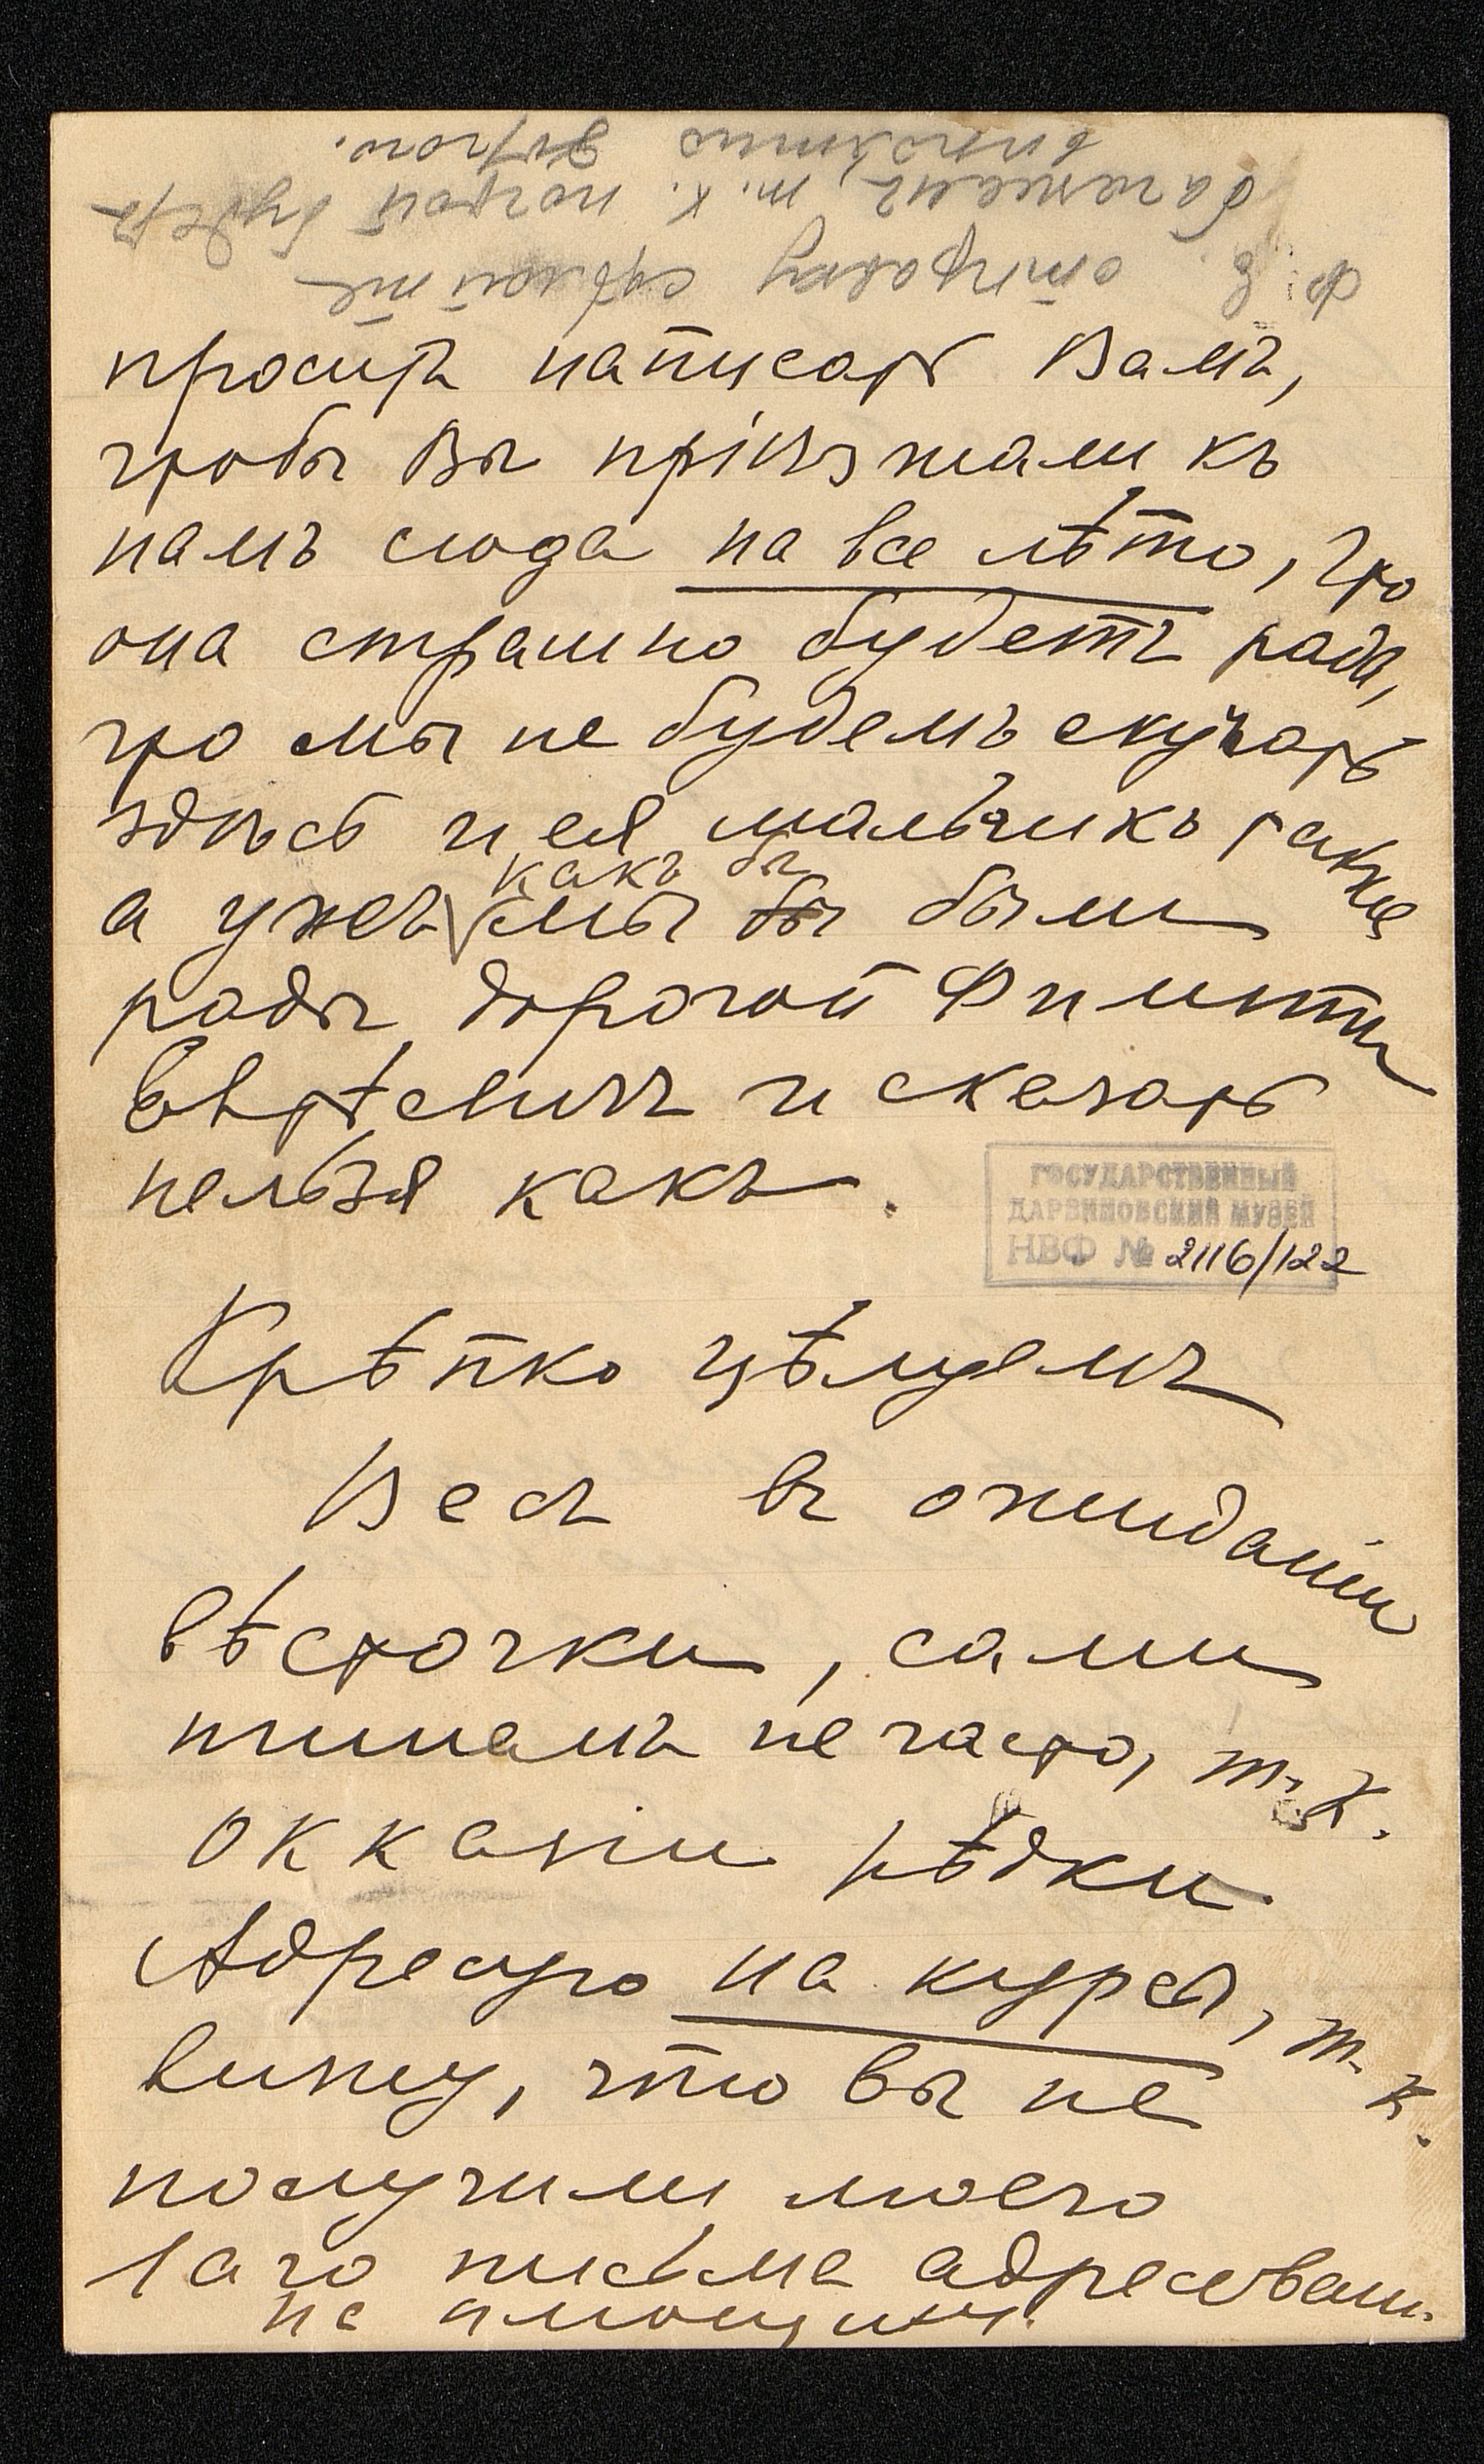 Ф. Е. отправку сделайте
багажемъ, т. к. почтой будетъ
вполтно дорого.
проситъ написать Вамъ,
чтобы Вы пріѣзжали къ
намъ сюда на все лѣто, что
она страшно будетъ рада,
что мы не будемъ скучать
здѣсь и ея мальчикъ также
а ужъ какъ бы мы бы были
рады, дорогой Филиппъ
Евтѣемичъ и сказать
нельзя какъ.
ГОСУДАРСТВЕННЫЙ
ДАРВИНОВСКИЙ МУЗЕЙ
НВФ № 2116/122
Крѣпко цѣлуемъ
Весь въ ожиданіи
вѣсточки, сами
пишемъ не часто, т. к.
окказіи рѣдки
Адресую на курсы, т. к.
вижу, что вы не
получили моего
1аго письма адресован.
на